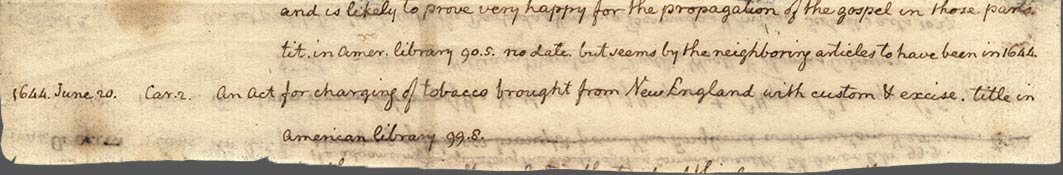 and is likely to prove very happy for the propagation of the gospel in those parts.
tit. in Amer. library 90.5. no date. but seems by the neighboring articles to have been in 1644.
1644. June 20. Car.2. An act for charging of tobacco brought from New England with custom & excise. title in
American library 99.8.